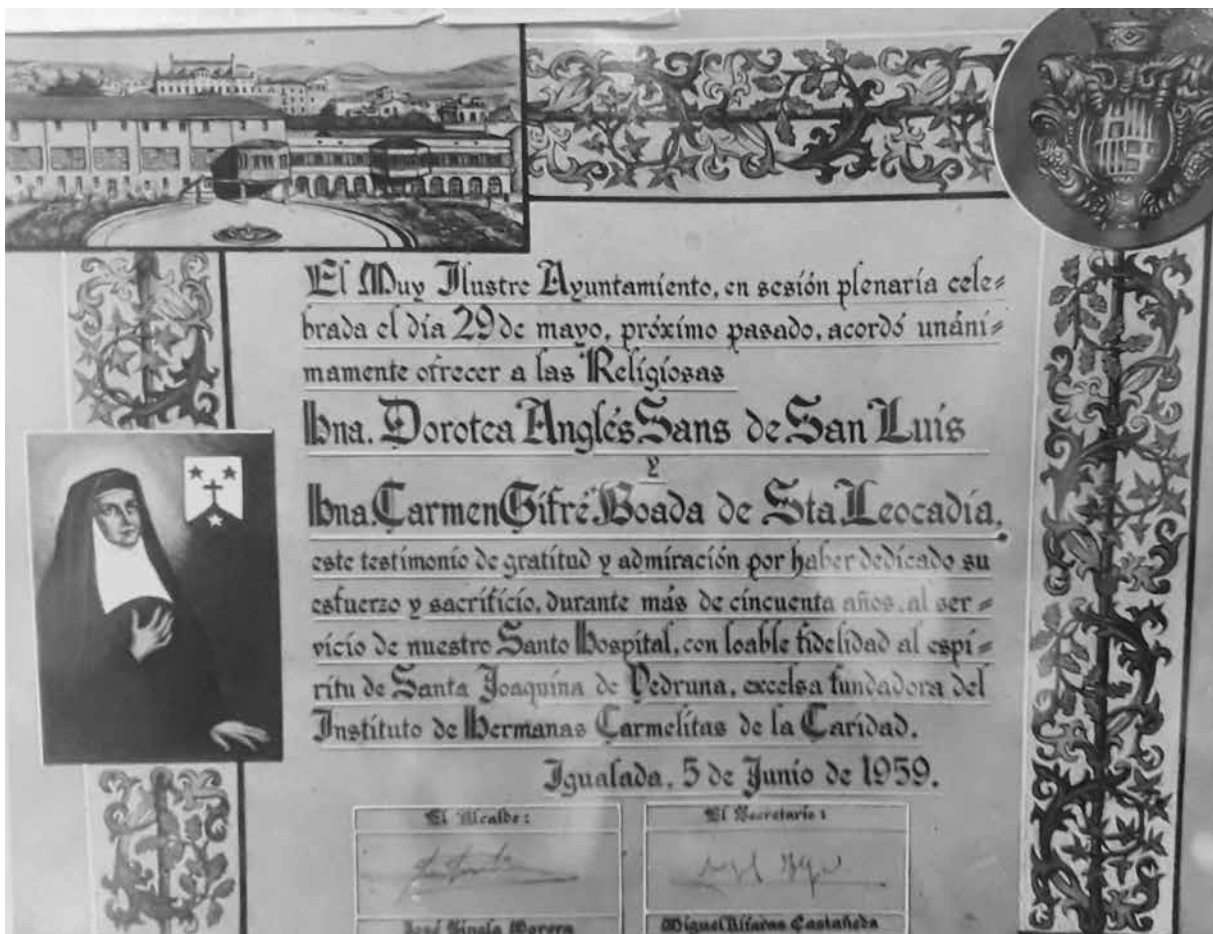 El Muy Ilustre Ayuntamiento, en sesión plenaria cele=
brada el día 29 de mayo, próximo pasado, acordó unáni=
mamente ofrecer a las Religiosas
Hna. Dorotea Anglés Sans de San Luis
y
Hna. Carmen Gifré Boada de Sta Leocadia,
este testimonio de gratitud y admiración por haber dedicado su
esfuerzo y sacrificio, durante más de cincuenta años, al ser=
vicio de nuestro Santo Hospital, con loable fidelidad al espí=
ritu de Santa Joaquina de Vedruna, excelsa fundadora del
Instituto de Hermanas Carmelitas de la Caridad.
Igualada, 5 de Junio de 1959.
El Alcalde:
El Secretario:
José Morera
Miguel Castañeda